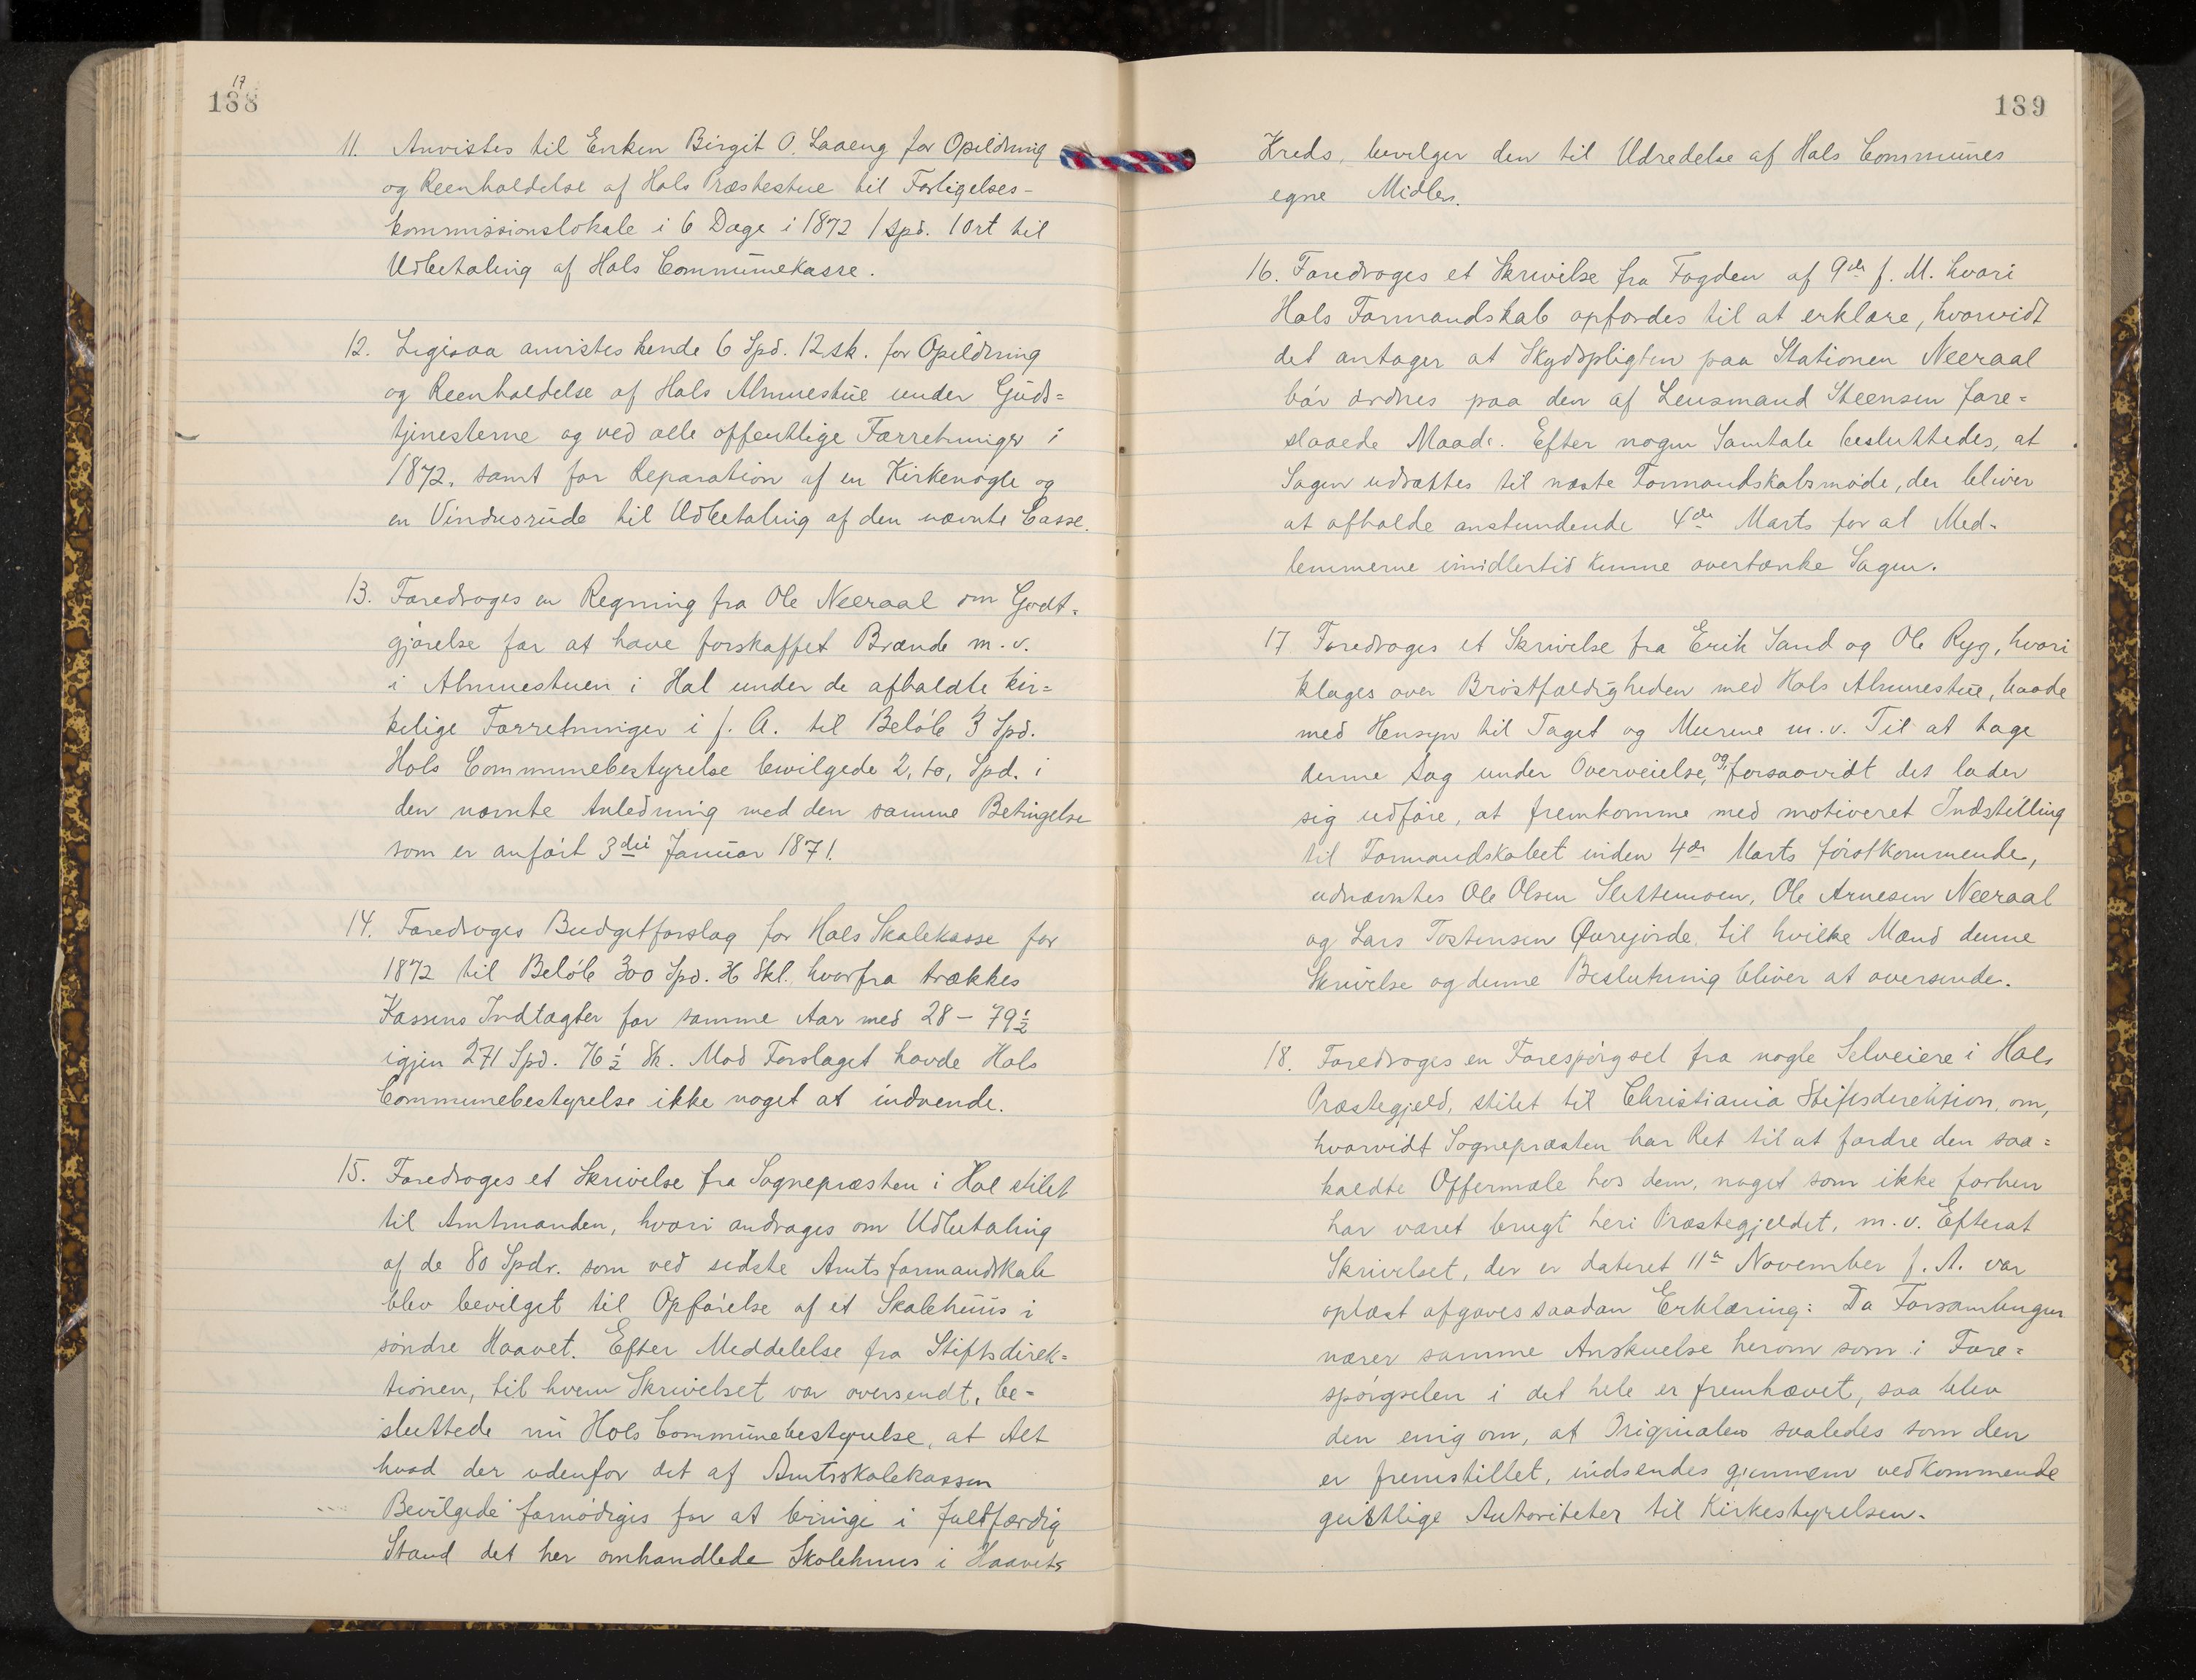 17
188
11. Anvistes til Enken Birgit O. Laaeng for Opildning
og Reenholdelse af Hols Præstestue til Forligelses-
kommissionslokale i 6 Dage i 1872 1 Spd. 1 Ort til
Udbetaling af Hols Communekasse.
12. Ligesaa anvistes hende 6 Spd. 12 sk. for Opildning
og Reenholdelse af Hols Almuestue under Guds=
tjenesterne og ved alle offentlige Forretninger i
1872, samt for Reparation af en Kirkenøgle og
en Vinduesrude til Udbetaling af den nævnte Casse.
13. Foredroges en Regning fra Ole Neeraal om Godt=
gjørelse for at have forskaffet Brænde m.v.
i Almuestuen i Hol under de afholdte kir=
kelige Forretninger i f. A. til Beløb 3 Spd.
Hols Communebestyrelse bevilgede 2, to, Spd. i
den nævnte Anledning med den samme Betingelse
som er anført 3die Januar 1871.
14. Foredroges Budgetforslag for Hols Skolekasse for
1872 til Beløb 300 Spd. 36 Skl. hvorfra trækkes
Kassens Indtægter for samme Aar med 28 - 79½
igjen 271 Spd. 76½ Sk. Mod Forslaget havde Hols
Communebestyrelse ikke noget at indvende.
15. Foredroges et Skrivelse fra Sognepræsten i Hol stilet
til Amtmanden, hvori andrages om Udbetaling
af de 80 Spdr. som ved sidste Amtsformandskab
blev bevilget til Opførelse af et Skolehuus i
søndre Haavet. Efter Meddelelse fra Stiftsdirek=
tionen, til hvem Skrivelset var oversendt, be=
sluttede nu Hols Communebestyrelse, at Alt
hvad der udenfor det af Amtsskolekassen
Bevilgede fornødiges for at bringe i fuldfærdig
Stand det her omhandlede Skolehuus i Haavets
189
Kreds, bevilger den til Udredelse af Hols Communes
egne Midler.
16. Foredroges et Skrivelse fra Fogden af 9de f. M. hvori
Hols Formandskab opfordes til at erklære, hvorvidt
det antager at Skydspligten paa Stationen Neeraal
bør ordnes paa den af Lensmand Steensen fore=
slaaede Maade. Efter nogen Samtale besluttedes, at
Sagen udsættes til næste Formandskabsmøde, der bliver
at afholde anstundende 4de Marts for at Med=
lemmerne imidlertid kunne overtænke Sagen.
17 Foredroges et Skrivelse fra Erik Sand og Ole Ryg, hvori
klages over Brøstfældigheden med Hols Almuestue, baade
med Hensyn til Taget og Murene m.v. Til at tage
denne Sag under Overveielse, og, forsaavidt det lader
sig udføre, at fremkomme med motiveret Indstilling
til Formandskabet inden 4de Marts førstkommende,
udnævntes Ole Olsen Slettemoen, Ole Arnesen Neeraal
og Lars Tostensen Øvrejorde, til hvilke Mænd denne
Skrivelse og denne Beslutning bliver at oversende.
18. Foredroges en Forespørgsel fra nogle Selveiere i Hols
Præstegjeld, stilet til Christiania Stiftsdirektion, om,
hvorvidt Sognepræsten har Ret til at fordre den saa=
kaldte Offermæle hos dem, noget som ikke forhen
har været brugt heri Præstegjeldet, m.v. Efterat
Skrivelset, der er dateret 11te November f. A. var
oplæst afgaves saadan Erklæring: Da Forsamlingen
nærer samme Anskuelse herom som i Fore=
spørgselen i det hele er fremhævet, saa blev
den enig om, at Originalen saaledes som den
er fremstillet, indsendes gjennem vedkommende
geistlige Autoriteter til Kirkestyrelsen.